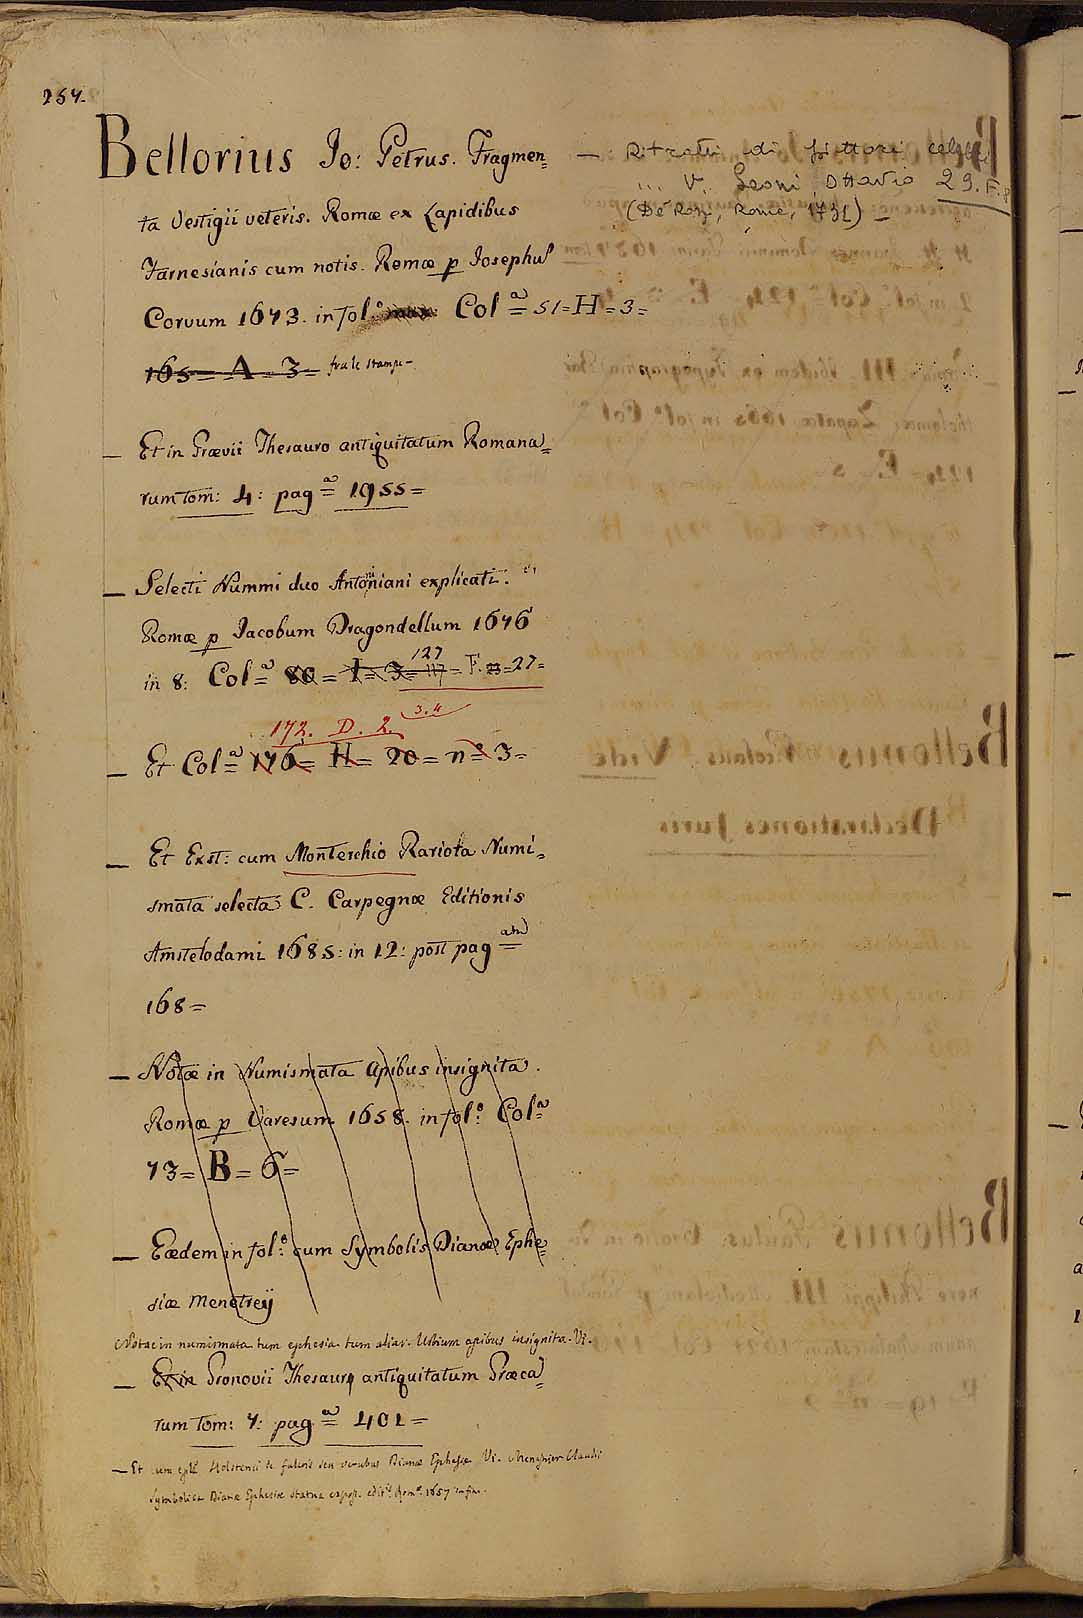 254.
Bellorius Jo: Petrus. Fragmen=
ta Vestigii veteris. Romæ ex Lapidibus
Farnesianis cum notis. Romæ p Josephum
Corvum 1673. in fol.º max: Col.ª = 51 = H = 3 =
165 = A = 3 = fra le stampe
— Et in Grævii Thesauro antiquitatum Romana=
rum tom: 4: pag.ª = 1955 =
— Selecti Nummi duo Antoniniani explicati.
Romæ p Jacobum Dragondellum 1676
in 8: Col.ª = 80 = I = 3 = 117 127 = F. = 27 =
172. D. 2. 3.4
— Et Col.ª = 176 = H = 20 = nº 3 =
— Et Exst: cum Monterchio Rariora Numi=
smata selecta C. Carpegnæ Editionis
Amstelodami 1685: in 12: post pag.am =
168 =
— Notæ in Numismata Apibus insignita.
Romæ p Varesum 1658. in fol.º Col.ª =
73 = B = 6 =
— Eædem in fol.º cum Symbolis Dianæ Ephe=
siæ Menetreÿ
Notae in numismata tum ephesia tum aliar. Urbium apibus insignita. Vi.
— Et in Gronovii Thesauro antiquitatum Græca=
rum tom: 7: pag.ª = 401 =
— Et cum Holstenii de fulcris seu verubus Dianæ Ephesiæ Vi. Claudii
Symbolica Dianæ Ephesiæ statua expos. Rom. 1657
— Ritratti di pittori celebri
... V. Leoni Ottavio 29. F.
(De Rossi, Roma, 1731) —